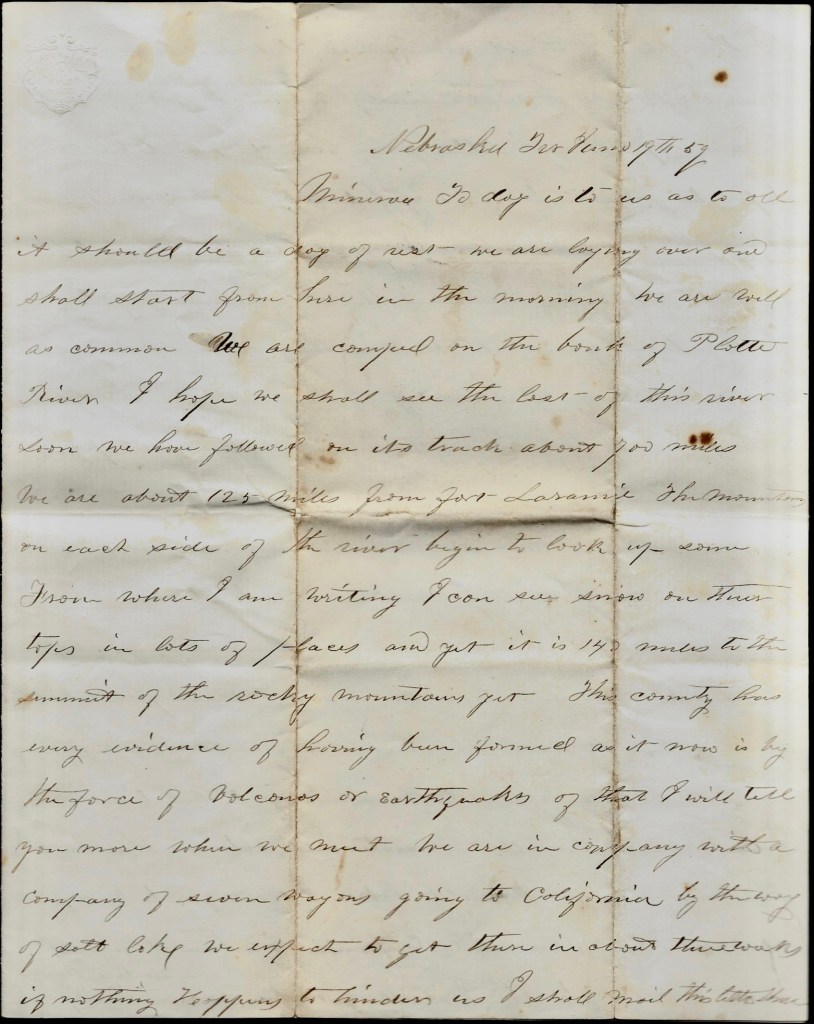 Nebraska Ter June 19th 59
Minerva To day is to us as to all
it should be a day of rest we are laying over and
shall start from here in the morning We are well
as common We are camped on the bank of Platte
River I hope we shall see the last of this river
soon we have followed on its track about 700 miles
We are about 125 miles from fort Laramie The mountains
on each side of the river begin to look up some
From where I am writing I can see snow on their
tops in lots of places and yet it is 140 miles to the
summit of the rocky mountains yet This county has
every evidence of having been formed as it now is by
the force of Volconos or Earthquaks of that I will tell
you more when we meet We are in company with a
company of seven wagons going to California by the way
of salt lake we expect to get there in about three weaks
if nothing Happens to hinder us I shall mail this letter there